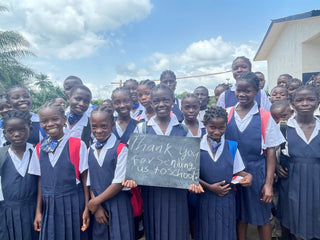 Thank you
for sending
us to school